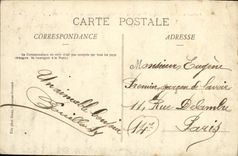 CARTE POSTALE
CORRESPONDANCE
ADRESSE
La Correspondance au recto n'est pas acceptée par tous les pays
étrangers. Se renseigner à la Poste
Un aimable bonjour
Monsieur Eugène
Premier garçon de lavoir
11, Rue Delambre
(14e)
Paris